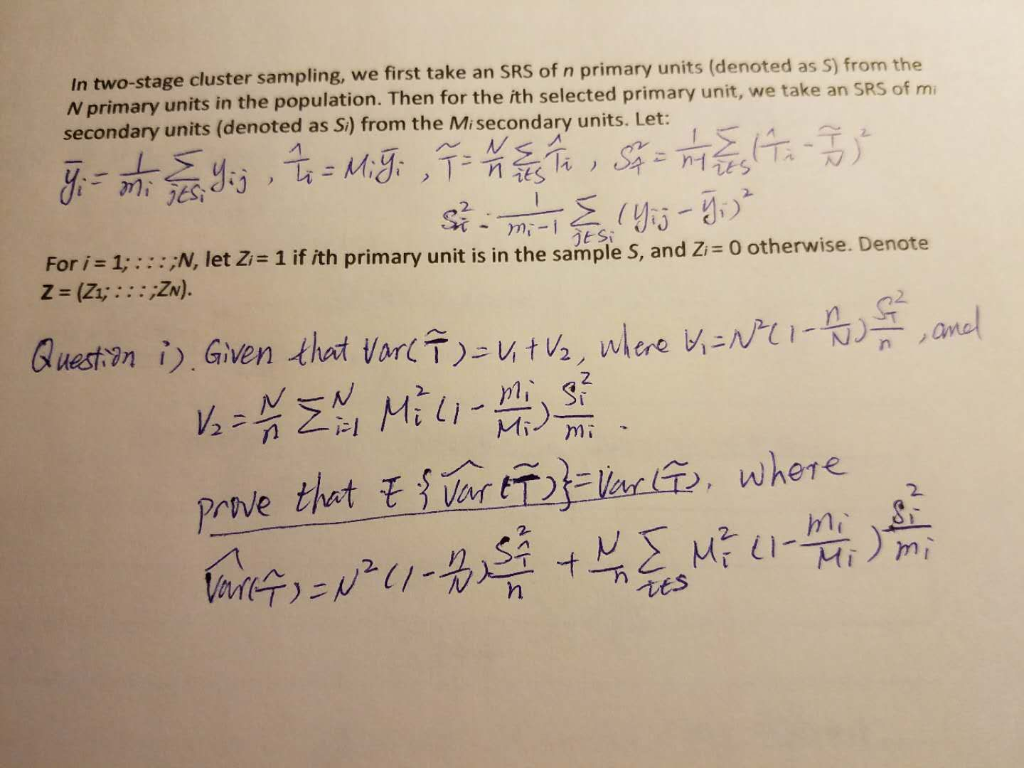 In two-stage cluster sampling, we first take an SRS of n primary units (denoted as S) from the
N primary units in the population. Then for the ith selected primary unit, we take an SRS of mi
secondary units (denoted as Si) from the Mi secondary units. Let:
ȳᵢ = 1/mᵢ Σ_{j∈Sᵢ} yᵢⱼ , T̂ᵢ = Mᵢȳᵢ , T̃ = N/n Σ_{i∈S} T̂ᵢ , S_T̂² = 1/(n-1) Σ_{i∈S} (T̂ᵢ - T̃/N)²
sᵢ² = 1/(mᵢ-1) Σ_{j∈Sᵢ} (yᵢⱼ - ȳᵢ)²
For i = 1; : : : ;N, let Zi = 1 if ith primary unit is in the sample S, and Zi = 0 otherwise. Denote
Z = (Z1; : : : ;ZN).
Question i). Given that Var(T̃) = V₁ + V₂, where V₁ = N²(1 - n/N) S_T²/n , and
V₂ = N/n Σ_{i=1}^N Mᵢ²(1 - mᵢ/Mᵢ) Sᵢ²/mᵢ .
prove that E{V̂ar(T̃)} = Var(T̃), where
V̂ar(T̃) = N²(1 - n/N) S_T̂²/n + N/n Σ_{i∈S} Mᵢ²(1 - mᵢ/Mᵢ) sᵢ²/mᵢ